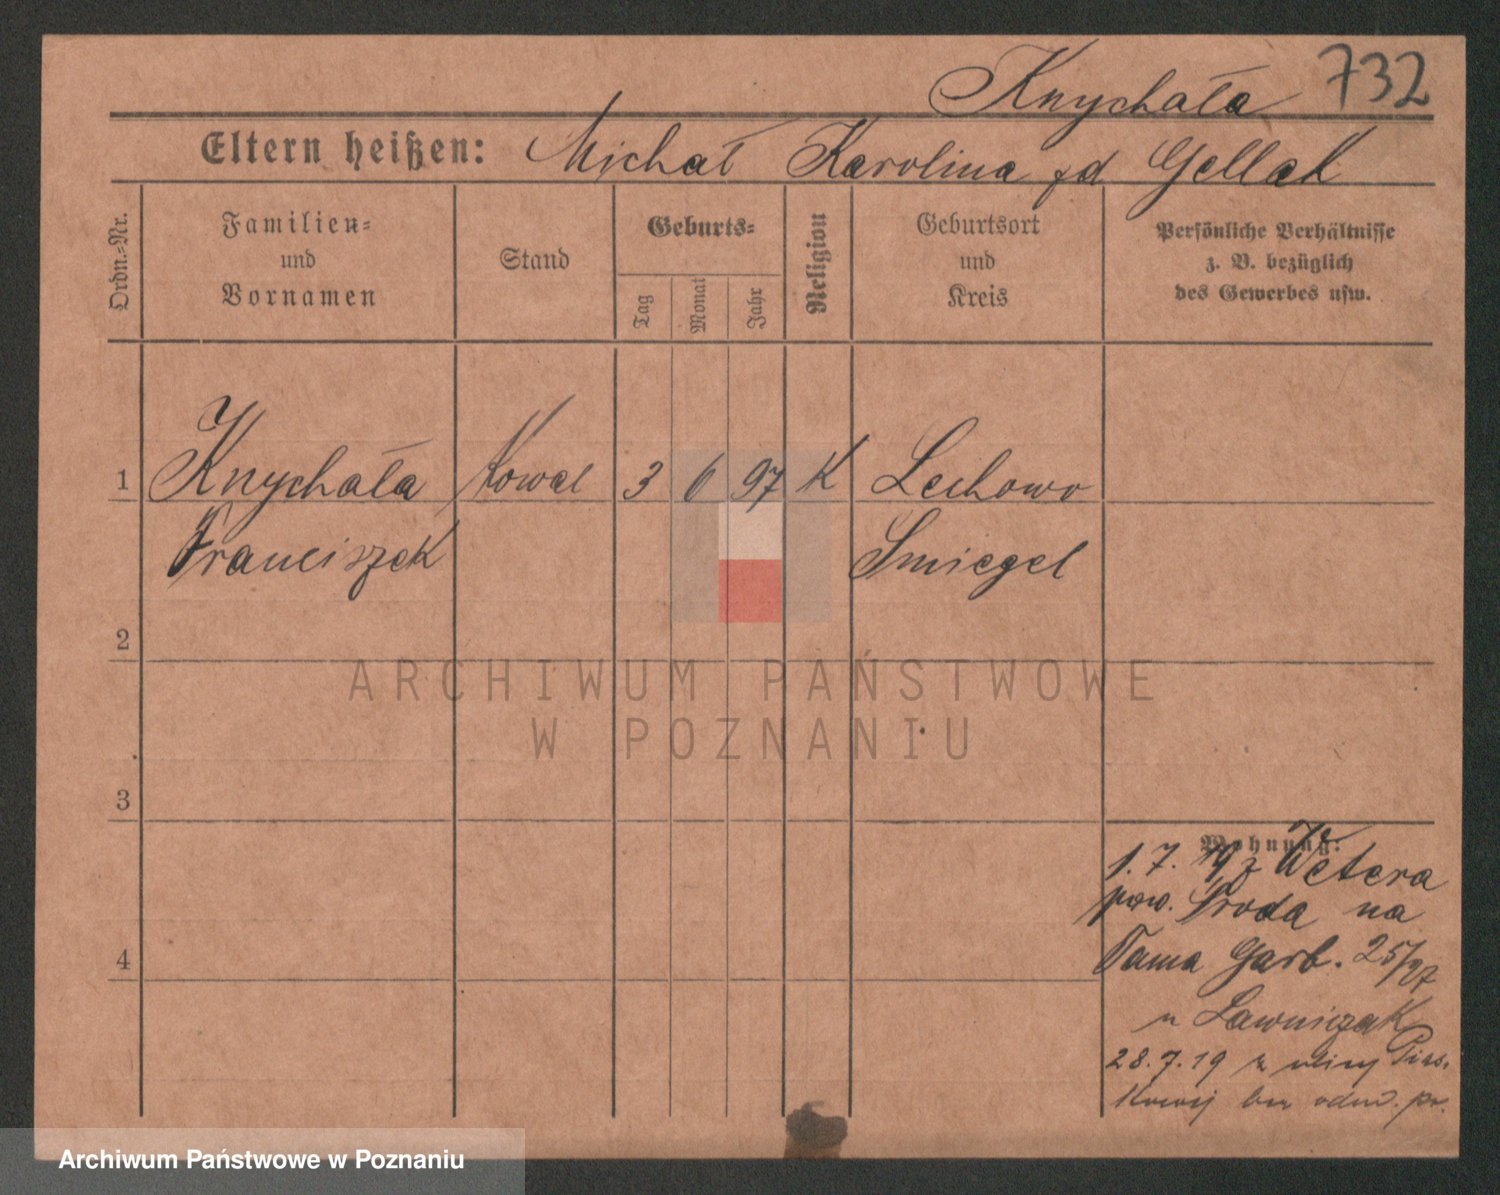 Knychała 732
Eltern heißen: Michał Karolina fd Gellak
Ordn.-Nr.
Familien=
und
Vornamen
Stand
Geburts=
Tag
Monat
Jahr
Religion
Geburtsort
und
Kreis
Persönliche Verhältnisse
z. B. bezüglich
des Gewerbes usw.
1 Knychała Kowal 3 6 97 K Lechowo
Franciszek Smiegel
2
3
4
Wohnung:
1. 7. 19 z Wetera
pow. Sroda na
Tama Garb. 25/27
u Ławniczak
28.7.19 z ulicy Pias.
kowej bez odm. po.
ARCHIWUM PAŃSTWOWE
W POZNANIU
Archiwum Państwowe w Poznaniu